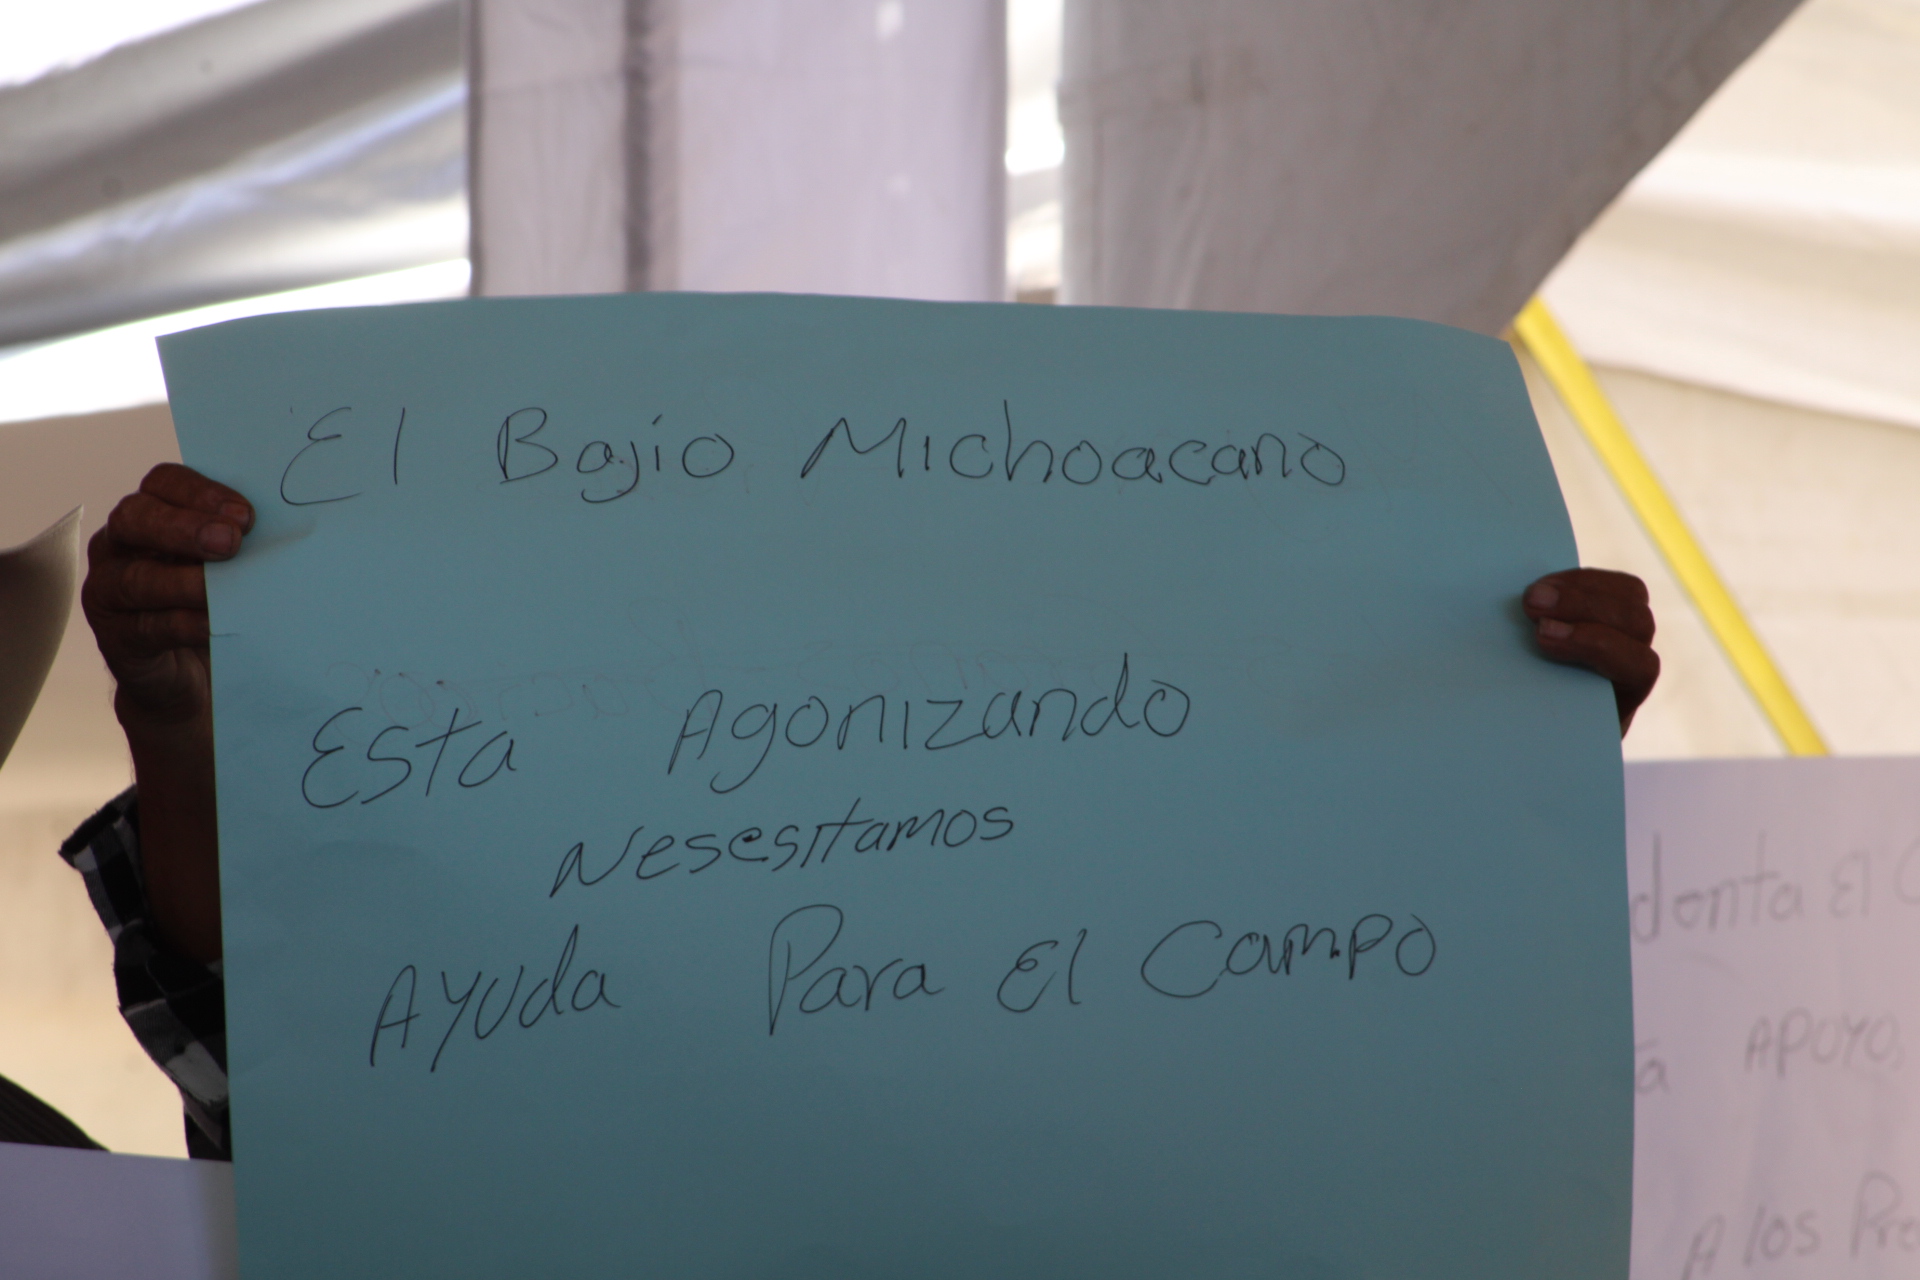 El Bajio Michoacano
Esta Agonizando
Nesesitamos
Ayuda Para El Campo
El
a APOYO,
A los